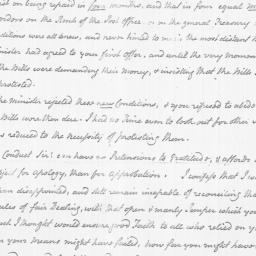 on being repaid in four months, and that in four equal
on the Bank of the Post Office, or on the general Treasury
ditions were all knew, and never hinted to me in the most distant
nister had agreed to your first Offer, and until the very momen
the Bills were demanding their money, & insisting that the Bills
protested.
the Minister rejected these new Conditions, & you refused to abide
Bills were then due. I had no time even to look out for other
reduced to the necessity of protesting them.
Conduct Sir! can have no Pretensions to gratitude, & affords
ject for apology, than for approbation. I confess that I w
disappointed, and still remain incapable of reconciling th
ules of fair Dealing, with that open & manly Temper which you
I thought would ensure good Faith to all who relied on yo
your means might have failed, how far you might have